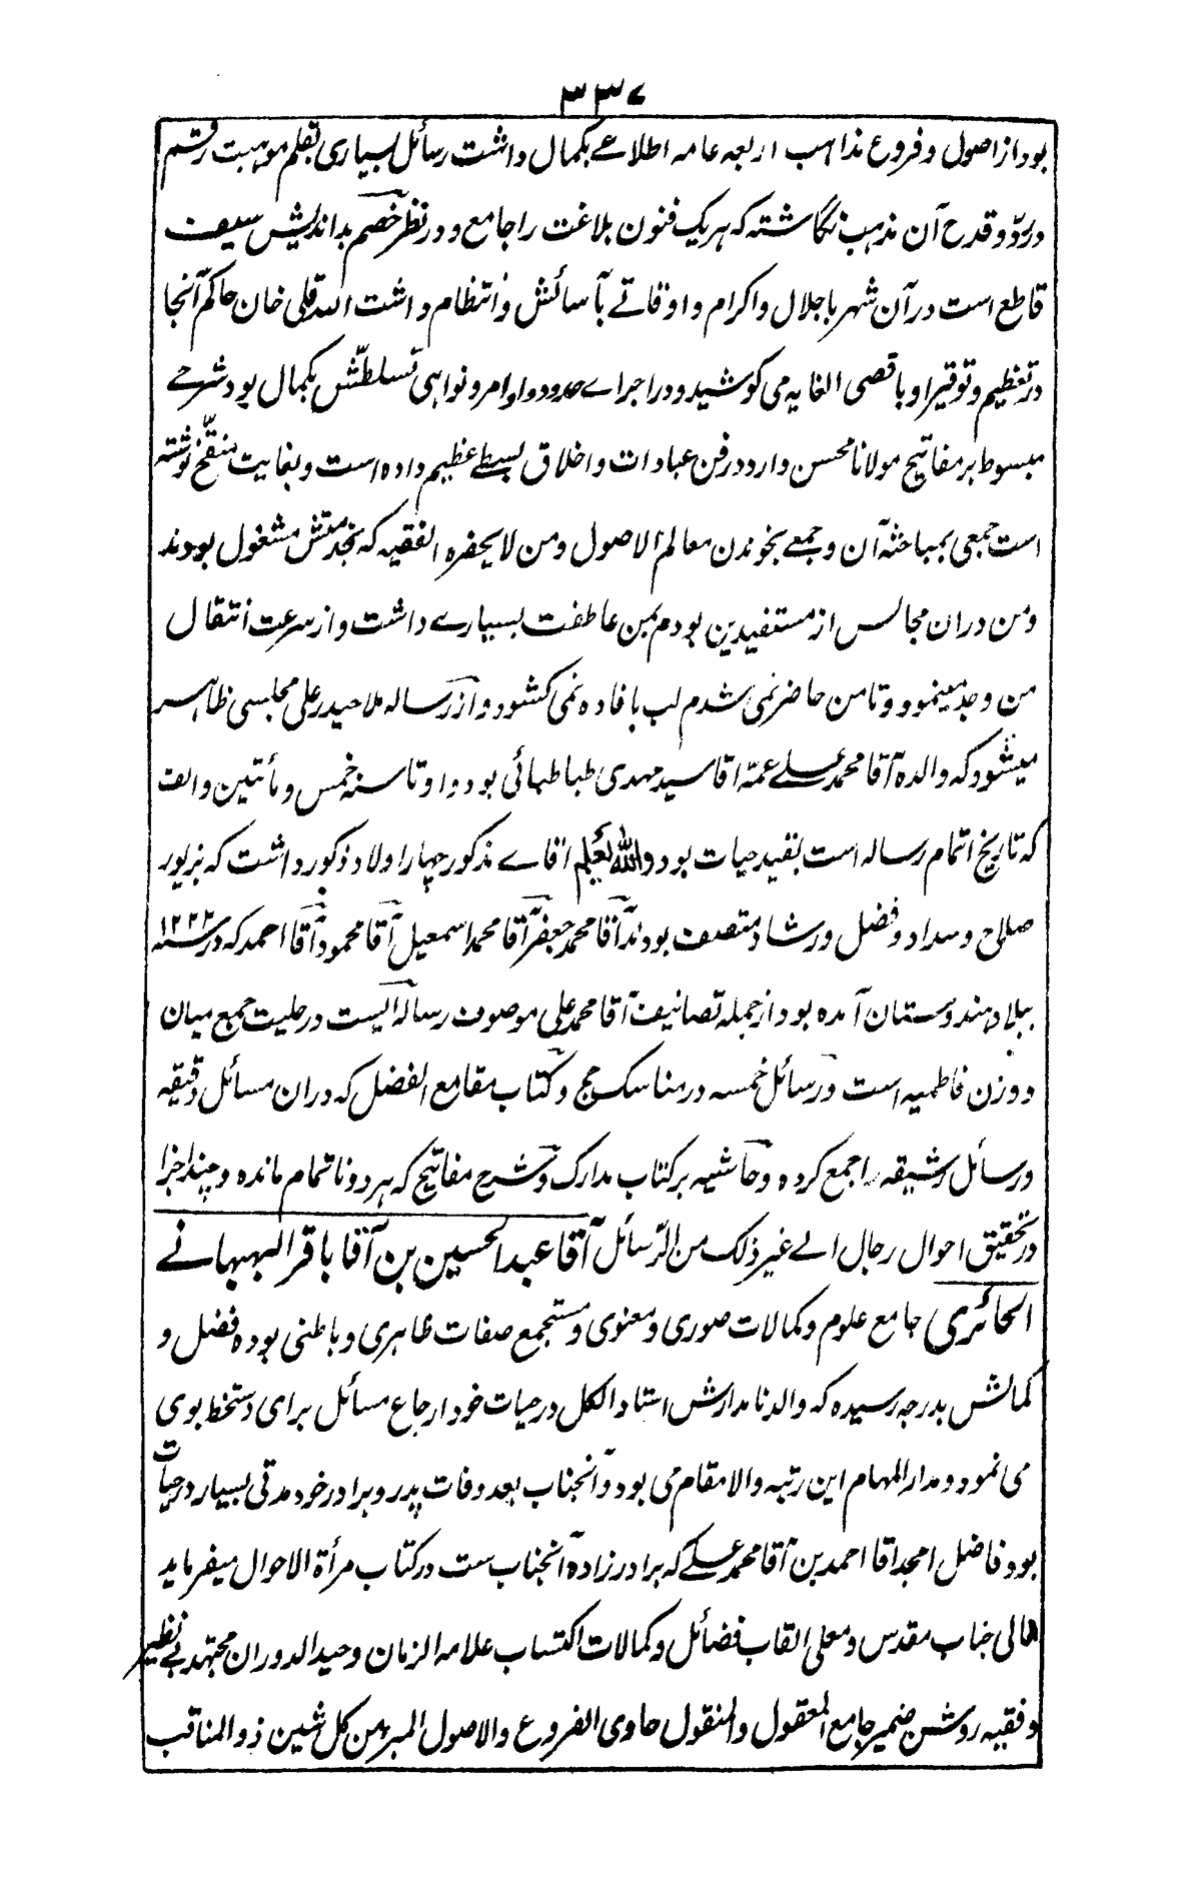 ۳۳۷
بود از اصول و فروع مذاهب اربعه عامه اطلاعے بکمال داشت رسائل بسیاری بقلم موهبت رقم
در ردّ و قدح آن مذهب نگاشته که هر یک فنون بلاغت را جامع و در نظر خصم بداندیش سیف
قاطع است در آن شهر با جلال و اکرام و اوقاتے بآسائش و انتظام داشت الله قلی خان حاکم آنجا
در تعظیم و توقیر او باقصی الغایه می کوشید و در اجراے حدود و اوامر و نواهی تسلطّش بکمال بود شرحے
مبسوط بر مفاتیح مولانا محسن دارد در فن عبادات و اخلاق بسطے عظیم داده است و بغایت منقّح نوشته
است جمعی بمباحثه آن و جمعے بخوندن معالم الاصول و من لا یحضره الفقیه که بخدمتش مشغول بودند
و من در ان مجالس از مستفیدین بودم بمن عاطفت بسیارے داشت و از سرعت انتقال
من وجد مینمود و تا من حاضر نمی شدم لب بافاده نمی کشود و از رساله ملا حیدر علی مجلسی ظاهر
میشود که والده آقا محمد علے عمّه آقا سید مهدی طباطبائی بود و او تا سنه خمس و مأتین والف
که تاریخ اتمام رساله است بقید حیات بود والله یعلم آقاے مذکور چهار اولاد ذکور داشت که بزیور
صلاح و سداد و فضل و رشاد متصف بودند آقا محمد جعفر آقا محمد اسمعیل آقا محمود آقا احمد که در سنه ۱۲۲۳
ببلاد هندوستان آمده بود از جمله تصانیف آقا محمد علی موصوف رساله ایست در حلیت جمع میان
دو زن فاطمیه است و رسائل خمسه در مناسک حج و کتاب مقامع الفضل که در ان مسائل دقیقه
و رسائل رشیقه را جمع کرده و حاشیه بر کتاب مدارک و شرح مفاتیح که هر دو ناتمام مانده و چند اجزا
در تحقیق احوال رجال الے غیر ذلک من الرّسائل آقا عبد الحسین بن آقا باقر البهبهانے
الحائری جامع علوم و کمالات صوری و معنوی و مستجمع صفات ظاهری و باطنی بوده فضل و
کمالش بدرجه رسیده که والد نامدارش استاد الکل در حیات خود ارجاع مسائل برای دستخط بوی
می نمود و مدار المهام این رتبه والا مقام می بود و آنجناب بعد وفات پدر و برادر خود مدتی بسیار در حیات
بود فاضل امجد آقا احمد بن آقا محمد علے که برادرزاده آنجناب ست در کتاب مرأة الاحوال میفرماید
عالی جناب مقدس و معلی القاب فضائل و کمالات اکتساب علامه الزمان وحید الدوران مجتهد بے نظیر
و فقیه روشن ضمیر جامع المعقول والمنقول حاوی الفروع والاصول المبرء من کل شین ذو المناقب